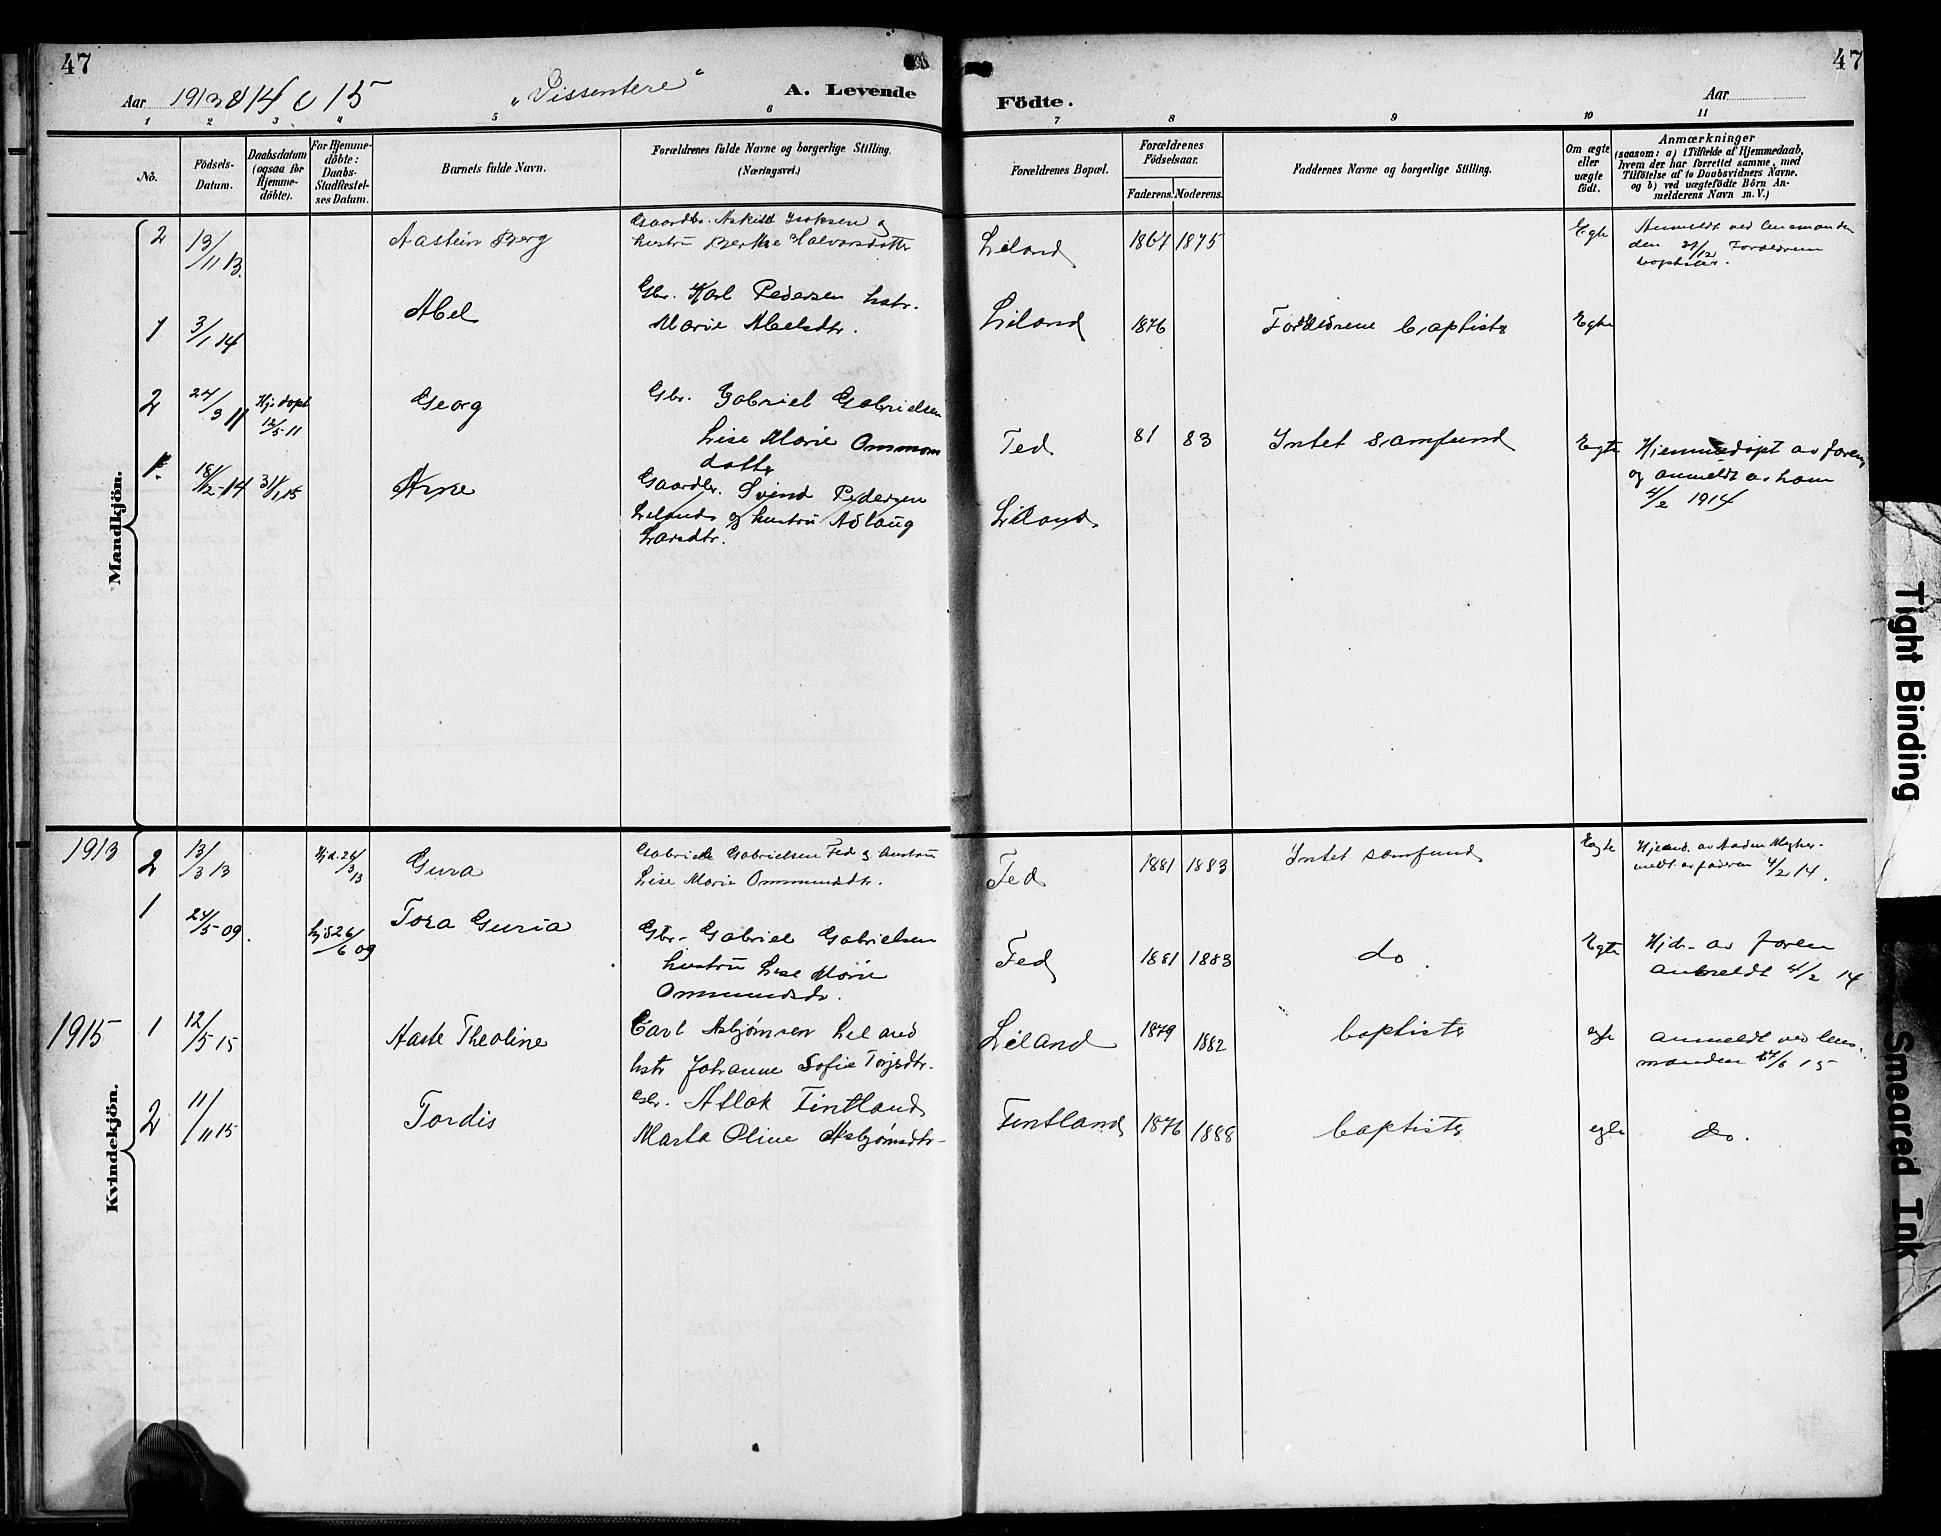 47
47
Aar 1913 & 14 o 15 "Dissentere" A. Levende Födte. Aar
1 2 3 4 5 6 7 8 9 10 11
No.
Födsels-Datum.
Daabsdatum (ogsaa for Hjemme-döbte).
For Hjemme-döbte: Daabs-Stadfæstel-ses Datum.
Barnets fulde Navn.
Forældrenes fulde Navne og borgerlige Stilling.
(Næringsvei.)
Forældrenes Bopæl.
Forældrenes Födselsaar.
Faderens. Moderens.
Faddernes Navne og borgerlige Stilling.
Om ægte eller uægte födt.
Anmærkninger
(saasom: a) i Tilfælde af Hjemmedaab,
hvem der har forrettet samme, med
Tilföielse af to Daabsvidners Navne,
og b) ved uægtefödte Börn An-
melderens Navn m. V.)
Mandkjön.
2 13/11 13. Aastein Berg
Gaardbr. Askild Isaksen og
hustru Berthe Halvorsdatter
Leland 1867 1875 Egte
Anmeldt ved
den 29/12 Forældrene
baptister.
1 3/1 14 Abel
Gbr. Karl Pedersen hstr.
Marie Abelsdtr.
Leland 1876 Forældrene baptister Egte
2 24/3 11 Hj. døpt 12/5 11 Georg
Gbr. Gabriel Gabrielsen
Lise Marie Ommun
datter
Fed 81 83 Intet samfund Egte
Hjemmedøpt av faren
og anmeldt av ham
4/2 1914
1. 18/12-14 31/1 15 Arne
Gaardbr. Svend Pedersen
Leland og hustru Aslaug
Larsdtr.
Leland
Kvindekjön.
1913 2 13/3 13 Hjd. 26/3 13 Gura
Gabriel Gabrielsen Fed og hustru
Lise Marie Ommundsdtr.
Fed 1881 1883 Intet samfund Egte
meldt av faderen 4/2 14.
1 24/5-09. hjd 26/6 09 Tora Guria
Gbr- Gabriel Gabrielsen
hustru Lise Marie
Ommundsdtr.
Fed 1881 1883 do. Egte
Hjd- av faren
anmeldt 4/2 14
1915 1 12/5 15 Aaste Theoline
Carl Asbjørnsen Leland
hstr Johanne Sofie Torjesdtr.
Leland 1879 1882 baptister egte
anmeldt ved lens-
manden 24/6 15
2 11/11 15 Tordis
Gbr. Atlak Fintland
Marta Oline Asbjørnsdtr-
Fintland 1876 1888 baptister egte do.
Tight Binding
Smeared Ink